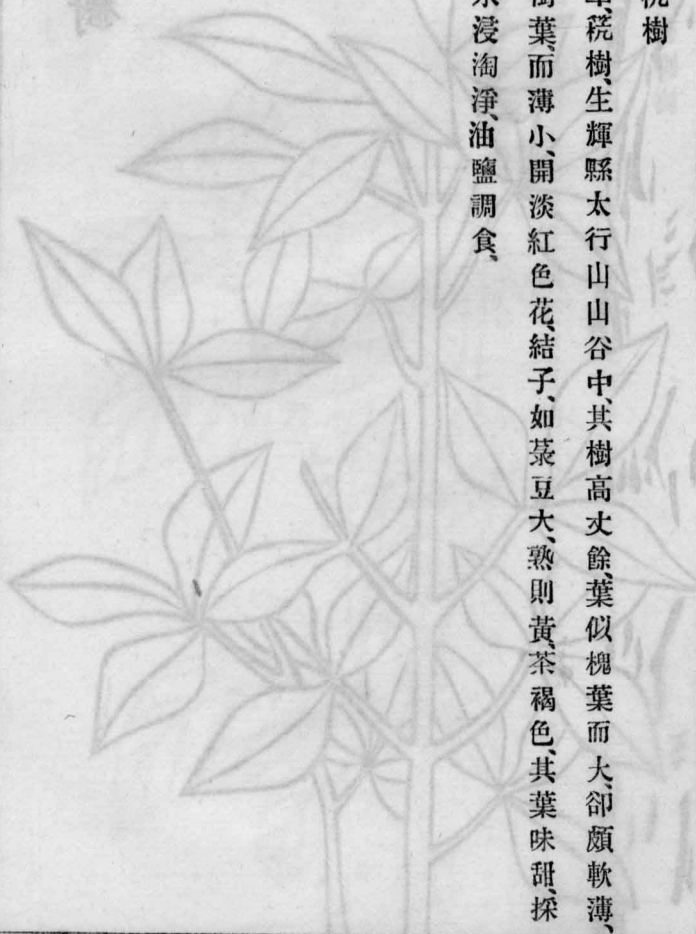 樹
稅樹、生輝縣太行山山谷中、其樹高丈餘、葉似槐葉而大、卻頗軟薄、
樹葉、而薄小、開淡紅色花、結子、如菉豆大、熟則黃、茶褐色、其葉味甜、採
水浸淘淨、油鹽調食、